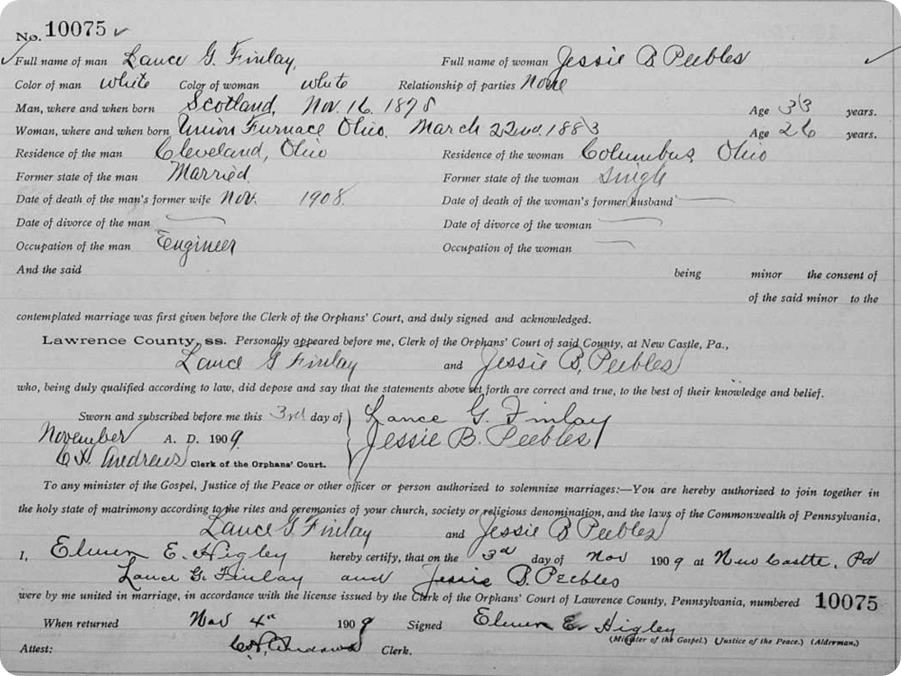 No. 10075 ✓
Full name of man Lance G. Finlay Full name of woman Jessie B Peebles
Color of man white Color of woman white Relationship of parties None
Man, where and when born Scotland, Nov. 16. 1878 Age 33 years.
Woman, where and when born Union Furnace Ohio. March 22nd. 1883 Age 26 years.
Residence of the man Cleveland, Ohio Residence of the woman Columbus Ohio
Former state of the man Married Former state of the woman Single
Date of death of the man's former wife Nov. 1908. Date of death of the woman's former husband
Date of divorce of the man Date of divorce of the woman
Occupation of the man Engineer Occupation of the woman
And the said being minor the consent of
of the said minor to the
contemplated marriage was first given before the Clerk of the Orphans' Court, and duly signed and acknowledged.
Lawrence County, ss. Personally appeared before me, Clerk of the Orphans' Court of said County, at New Castle, Pa.,
Lance G Finlay and Jessie B. Peebles
who, being duly qualified according to law, did depose and say that the statements above set forth are correct and true, to the best of their knowledge and belief.
Sworn and subscribed before me this 3rd day of Lance G. Finlay
November A. D. 1909 Jessie B. Peebles
Andrews Clerk of the Orphans' Court.
To any minister of the Gospel, Justice of the Peace or other officer or person authorized to solemnize marriages:—You are hereby authorized to join together in
the holy state of matrimony according to the rites and ceremonies of your church, society or religious denomination, and the laws of the Commonwealth of Pennsylvania,
Lance G. Finlay and Jessie B Peebles
I, Elmer E. Higley hereby certify, that on the 3rd day of Nov 1909 at New Castle, Pa
Lance G. Finlay and Jessie B. Peebles
were by me united in marriage, in accordance with the license issued by the Clerk of the Orphans' Court of Lawrence County, Pennsylvania, numbered 10075
When returned Nov 4th 1909 Signed Elmer E. Higley
(Minister of the Gospel.) (Justice of the Peace.) (Alderman.)
Attest: Andrews Clerk.